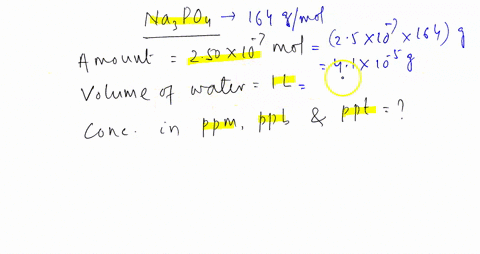 Na₃PO₄ → 164 g/mol
Amount = 2.50×10⁻⁷ mol = (2.5×10⁻⁷×164) g
= 4.1×10⁻⁵ g
Volume of water = 1L =
Conc. in ppm, ppb & ppt = ?